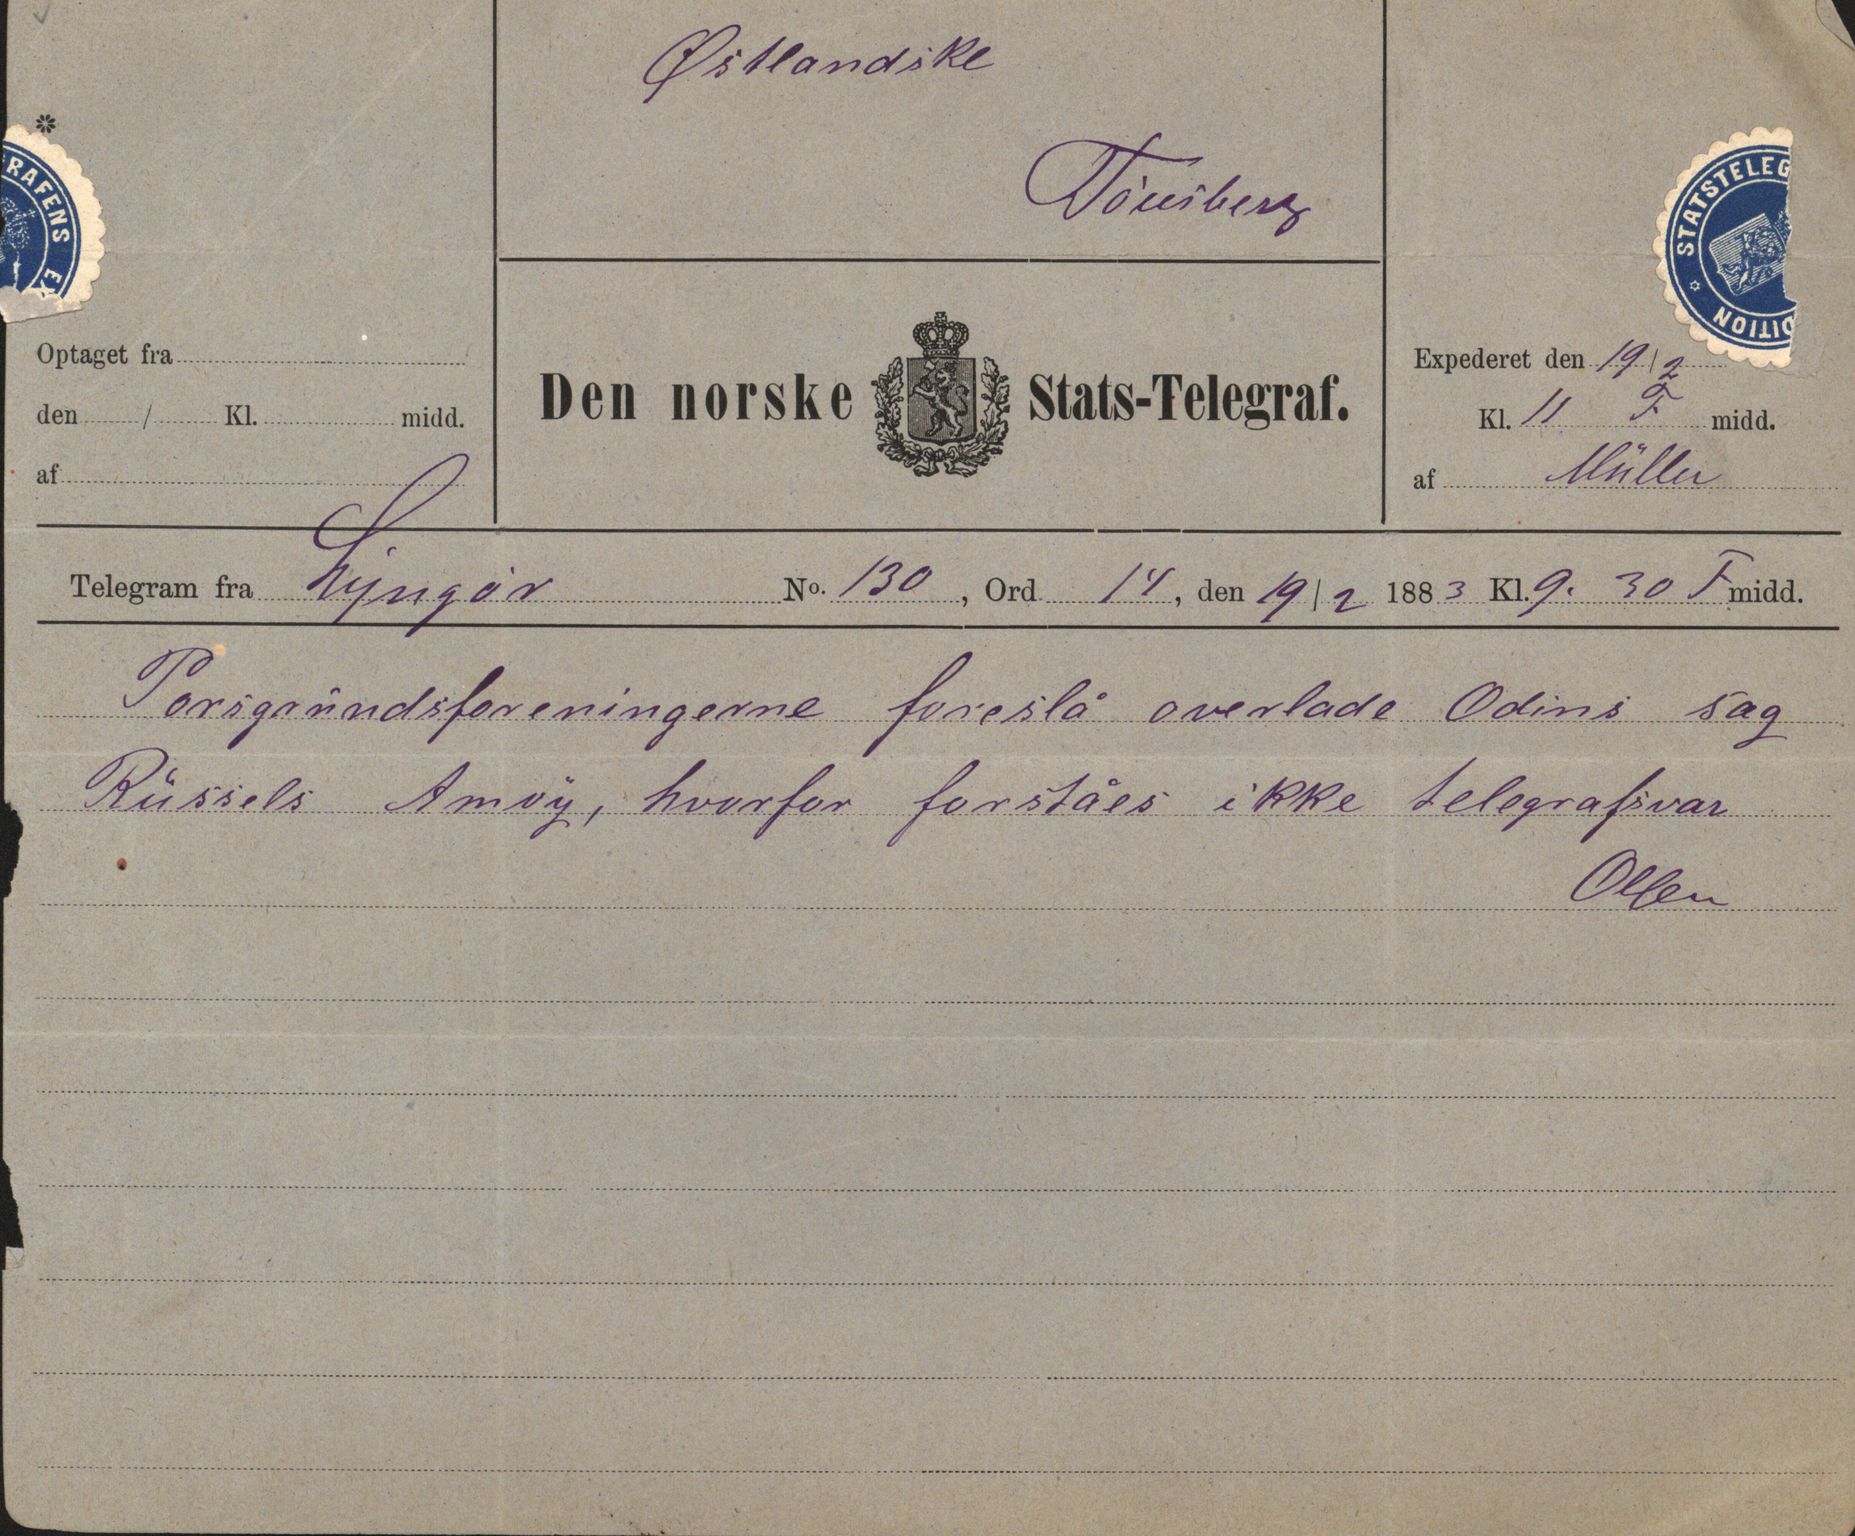 Østlandske
Tönsberg
*
RAFENS E
STATSTELEG
DITION
Optaget fra
den / Kl. midd.
af
Den norske Stats-Telegraf.
Expederet den 19/2
Kl. 11 F. midd.
af Müller
Telegram fra Lyngör No. 130, Ord 14, den 19/2 1883 Kl. 9.30 F midd.
Porsgrundsforeningerne foreslå overlade Odins sag
Rüssels Amöy, hvorfor forståes ikke telegrafsvar
Olsen